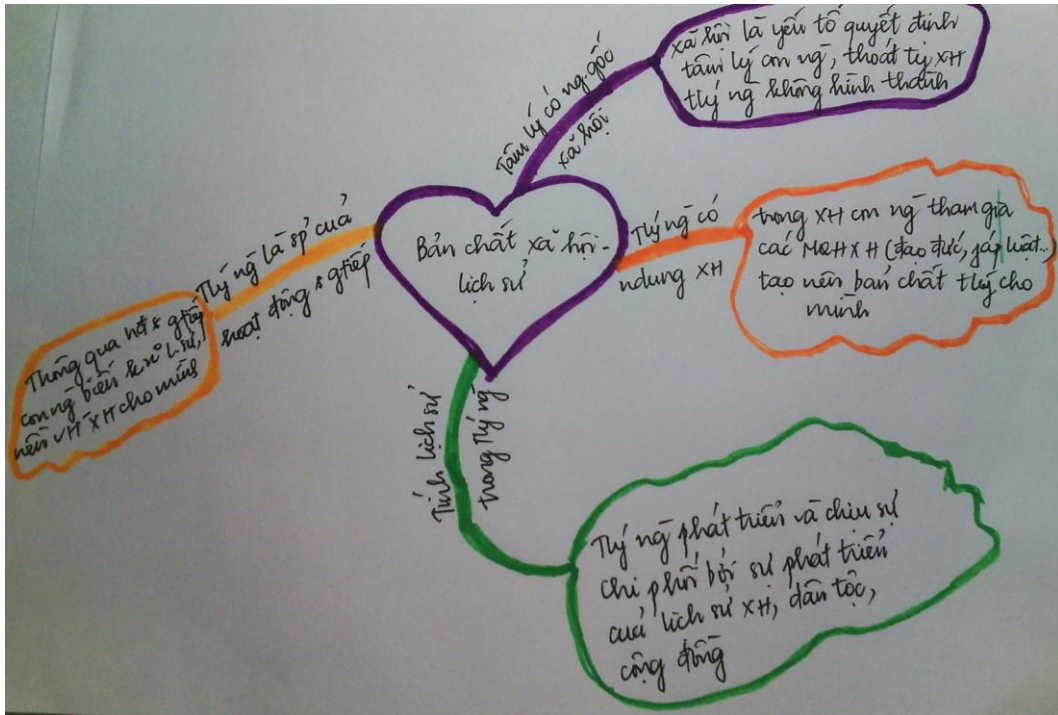 Bản chất xã hội -
lịch sử
Tâm lý có ng. gốc
xã hội
xã hội là yếu tố quyết định
tâm lý con ng, thoát ly XH
tlý ng không hình thành
Tlý ng có
ndung XH
trong XH con ng tham gia
các MQH XH (đạo đức, pháp luật..)
tạo nên bản chất tlý cho
mình
Tính lịch sử
trong tlý ng
Tlý ng phát triển và chịu sự
chi phối bởi sự phát triển
của lịch sử XH, dân tộc,
cộng đồng
Tlý ng là sp của
hoạt động & gtiếp
Thông qua hđ & gtiếp
con ng biến
nền VH XH cho mình